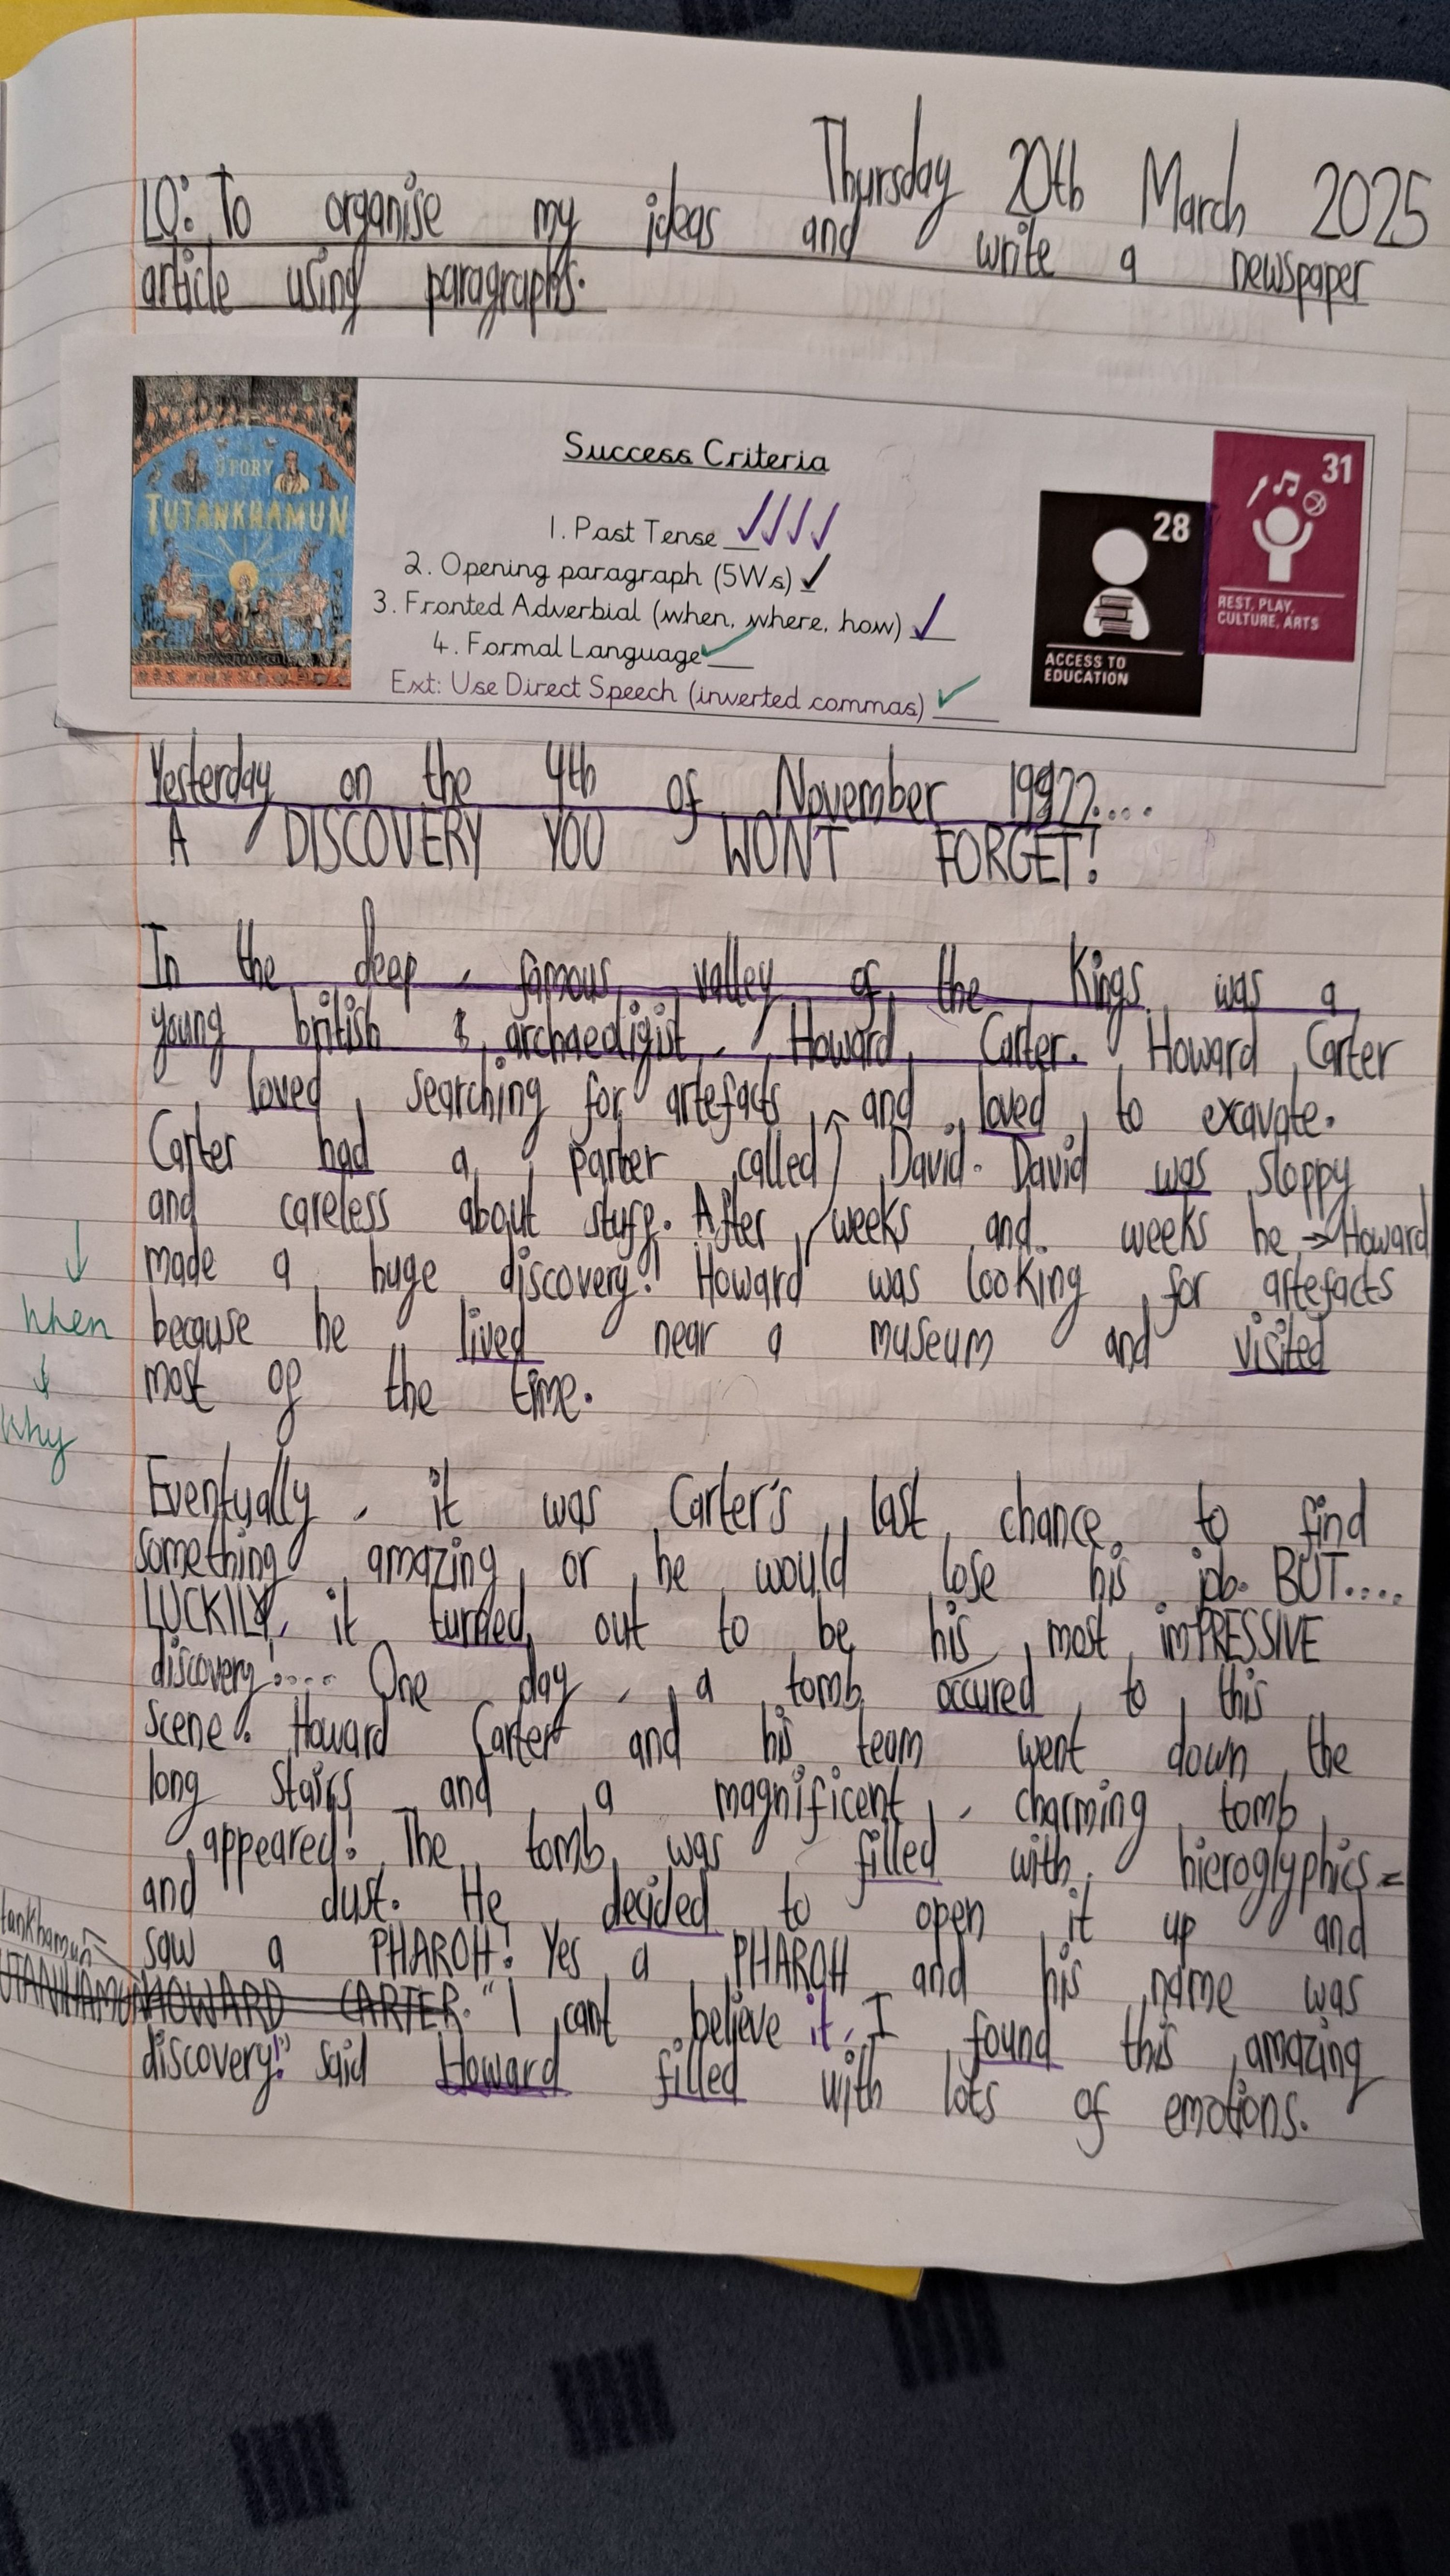 Thursday 20th March 2025
LO: To organise my ideas and write a newspaper
article using paragraphs.
STORY
TUTANKHAMUN
Success Criteria
1. Past Tense
2. Opening paragraph (5Ws)
3. Fronted Adverbial (when, where, how)
4. Formal Language
Ext: Use Direct Speech (inverted commas)
28
ACCESS TO
EDUCATION
31
REST, PLAY,
CULTURE, ARTS
Yesterday on the 4th of November
A DISCOVERY YOU WONT FORGET!
In the deep, famous valley of the Kings was a
young british archaedigist, Howard Carter. Howard Carter
loved searching for artefacts, and loved to excavate.
Carter had a parter called David. David was sloppy
and careless about stuff. After weeks and weeks he → Howard
made a huge discovery! Howard was looking for artefacts
because he lived near a museum and visited
most of the time.
When
Why
Eventually, it was Carter's last chance to find
something amazing or he would lose his job. BUT....
LUCKILY, it turned out to be his most imPRESSIVE
discovery!.... One day, a tomb occured to this
scene. Howard Carter and his team went down the
long stairs and a magnificent, charming tomb
appeared! The tomb was filled with hieroglyphics
and dust. He decided to open it up and
saw a PHAROH! Yes a PHAROH and his name was
tankhamun
HOWARD CARTER. "I cant believe it, I found this amazing
discovery!" said Howard filled with lots of emotions.